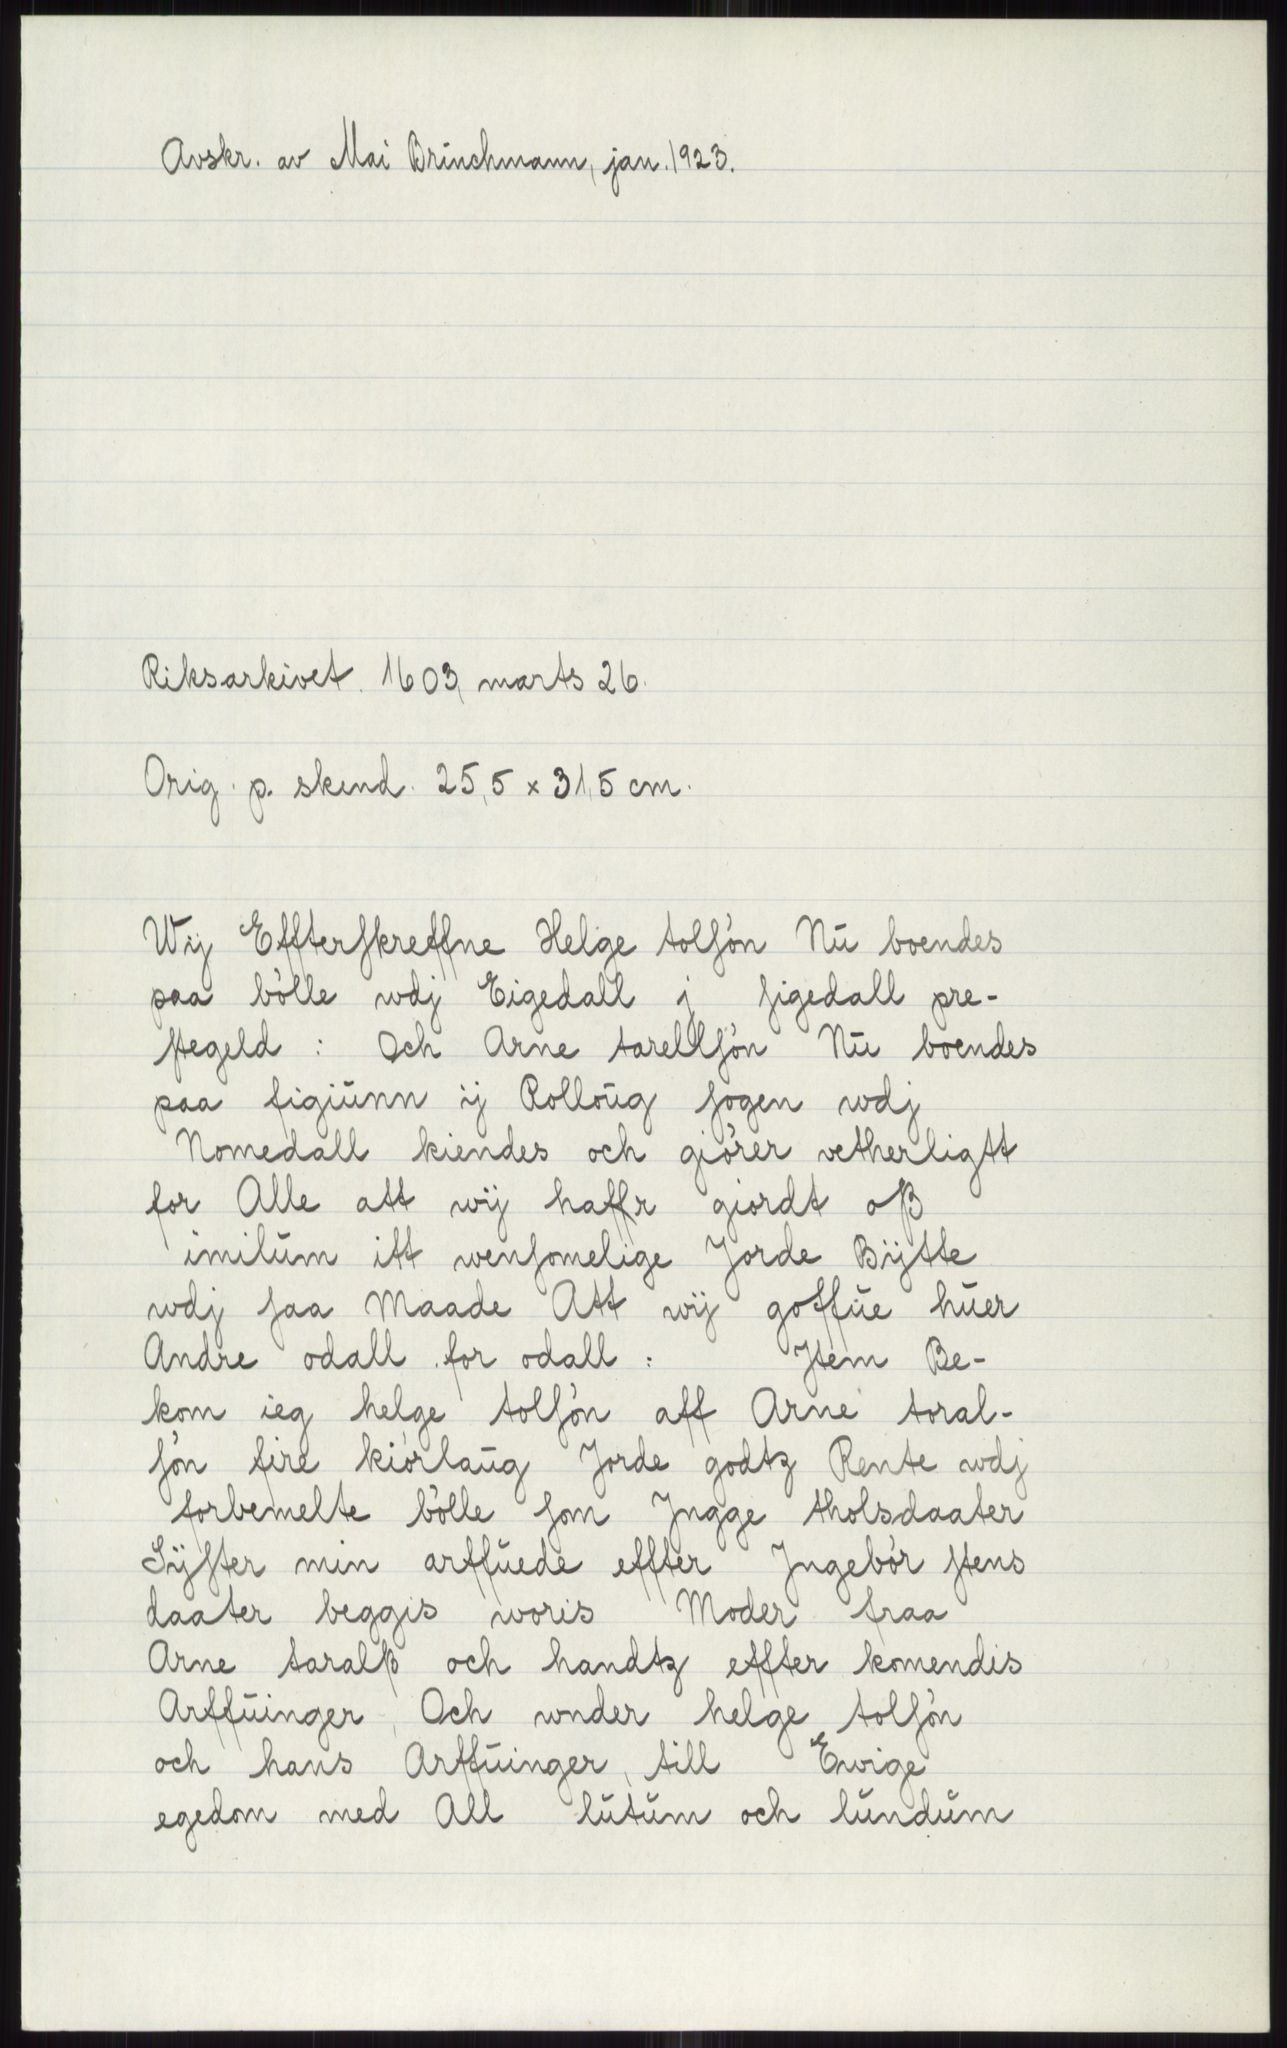 Avskr. av Mai Brinchmann, jan. 1923.
Riksarkivet. 1603, marts 26.
Orig. p. skind. 25,5 x 31,5 cm.
Wij Effterſkreffne Helge tolſón Nū boendes
paa bólle wdj Eigedall j ſigedall pre-
ſtegeld : Och Arne tarellſón Nū boendes
paa figiūnn ij Rolloūg ſogen wdj
Nomedall kiendes och giórer vetherligtt
for Alle att wij haffr giordt oß
imilūm itt wenſomelige Jorde Bijtte
wdj ſaa Maade Att wij goffūe hūer
Andre odall for odall : Jtem Be-
kom ieg helge tolſón aff Arne toral-
ſón fire kiórlaūg Jorde godtz Rente wdj
forbemelte bólle ſom Jngge tholsdaater
Sijſter min arffūede effter Jngebór ſtens
daater beggis woris Moder fraa
Arne taralß och handtz effter komendis
Arffūinger, Och wnder helge tolſón
och hans Arffūinger, till Ewige
egedom med All lūtūm och lūndūm